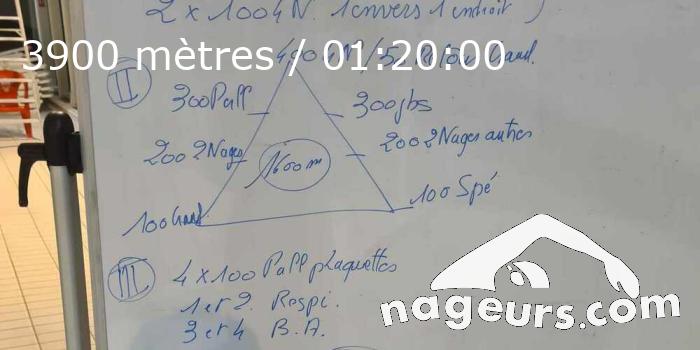 2 x 100 4N. 1 envers 1 endroit )
3900 mètres / 01:20:00
400 4N /
II
300 Pall
300 jbs
200 2Nages
200 2Nages autres
1600m
100
100 Spé
III
4 x 100 Pall plaquettes
1 et 2 Respi.
3 et 4 B.A.
nageurs.com